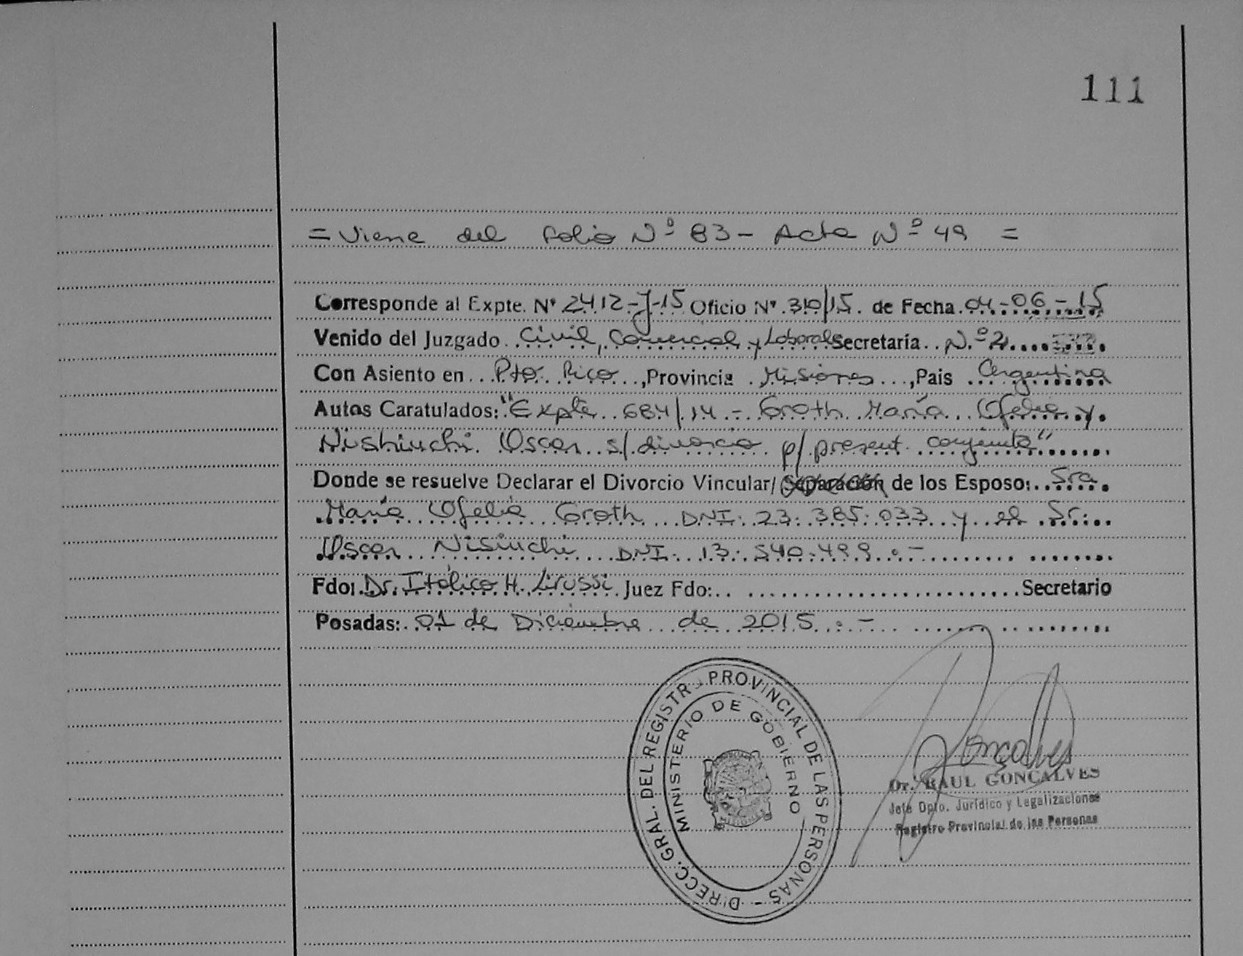 111
= Viene del folio Nº 83 - Acta Nº 49 =
Corresponde al Expte. Nº 2412-J-15 Oficio Nº 310/15. de Fecha 04-06-15
Venido del Juzgado Civil, Comercial y Laboral Secretaria Nº 2
Con Asiento en Pto. Rico, Provincia Misiones, Pais Argentina
Autos Caratulados: "Expte. 684/14 - Groth María Ofelia y
Nishiuchi Oscar s/divorcio p/present. conjunta"
Donde se resuelve Declarar el Divorcio Vincular/ Separación de los Esposo: Sra.
María Ofelia Groth DNI: 23.385.033 y el Sr.
Oscar Nisiuchi DNI: 13.540.499.-
Fdo: Dr. Itálico H. Juez Fdo: Secretario
Posadas: 01 de Diciembre de 2015.-
DIRECC. GRAL. DEL REGISTRO PROVINCIAL DE LAS PERSONAS -
MINISTERIO DE GOBIERNO
Gonçalves
Dr. RAUL GONCALVES
Jefe Dpto. Jurídico y Legalizaciones
Registro Provincial de las Personas